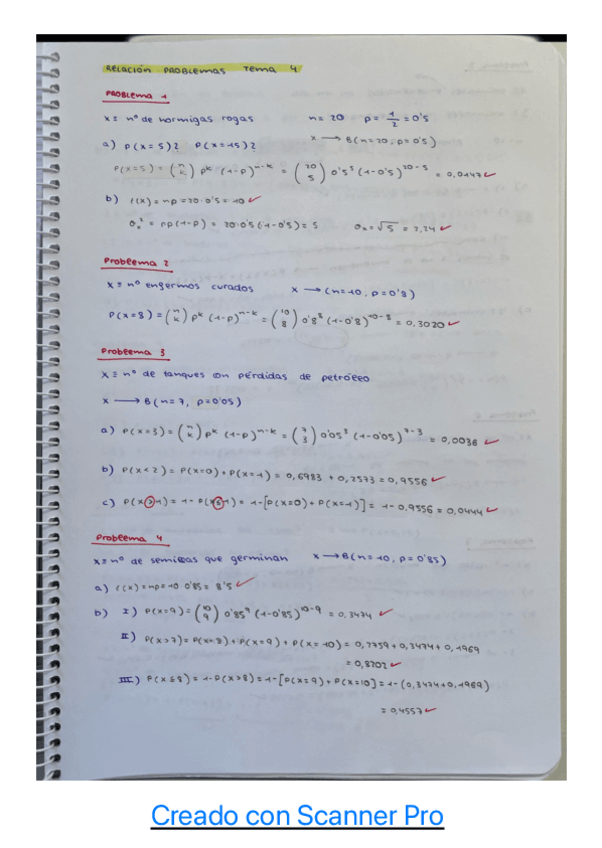 RELACIÓN PROBLEMAS TEMA 4
PROBLEMA 1
X ≡ nº de hormigas rojas n = 20 p = 1/2 = 0'5
a) P(X = 5)? P(X = 15)? X → B(n = 20, p = 0'5)
P(X = 5) = (n k) p^k (1-p)^n-k = (20 5) 0'5^5 (1-0'5)^20-5 = 0,0147 ✓
b) E(X) = np = 20·0'5 = 10 ✓
σx² = np(1-p) = 20·0'5(1-0'5) = 5 σx = √5 = 2,24 ✓
Problema 2
X ≡ nº enfermos curados X → (n = 10, p = 0'8)
P(X = 8) = (n k) p^k (1-p)^n-k = (10 8) 0'8^8 (1-0'8)^10-8 = 0,3020 ✓
Problema 3
X ≡ nº de tanques con pérdidas de petróleo
X → B(n = 7, p = 0'05)
a) P(X = 3) = (n k) p^k (1-p)^n-k = (7 3) 0'05^3 (1-0'05)^7-3 = 0,0036 ✓
b) P(X < 2) = P(X = 0) + P(X = 1) = 0,6983 + 0,2573 = 0,9556 ✓
c) P(X > 1) = 1 - P(X ≤ 1) = 1 - [P(X = 0) + P(X = 1)] = 1 - 0,9556 = 0,0444 ✓
Problema 4
X ≡ nº de semillas que germinan X → B(n = 10, p = 0'85)
a) E(X) = np = 10·0'85 = 8'5 ✓
b) I) P(X = 9) = (10 9) 0'85^9 (1-0'85)^10-9 = 0,3474 ✓
II) P(X > 7) = P(X = 8) + P(X = 9) + P(X = 10) = 0,2759 + 0,3474 + 0,1969
= 0,8202 ✓
III) P(X ≤ 8) = 1 - P(X > 8) = 1 - [P(X = 9) + P(X = 10] = 1 - (0,3474 + 0,1969)
= 0,4557 ✓
Creado con Scanner Pro